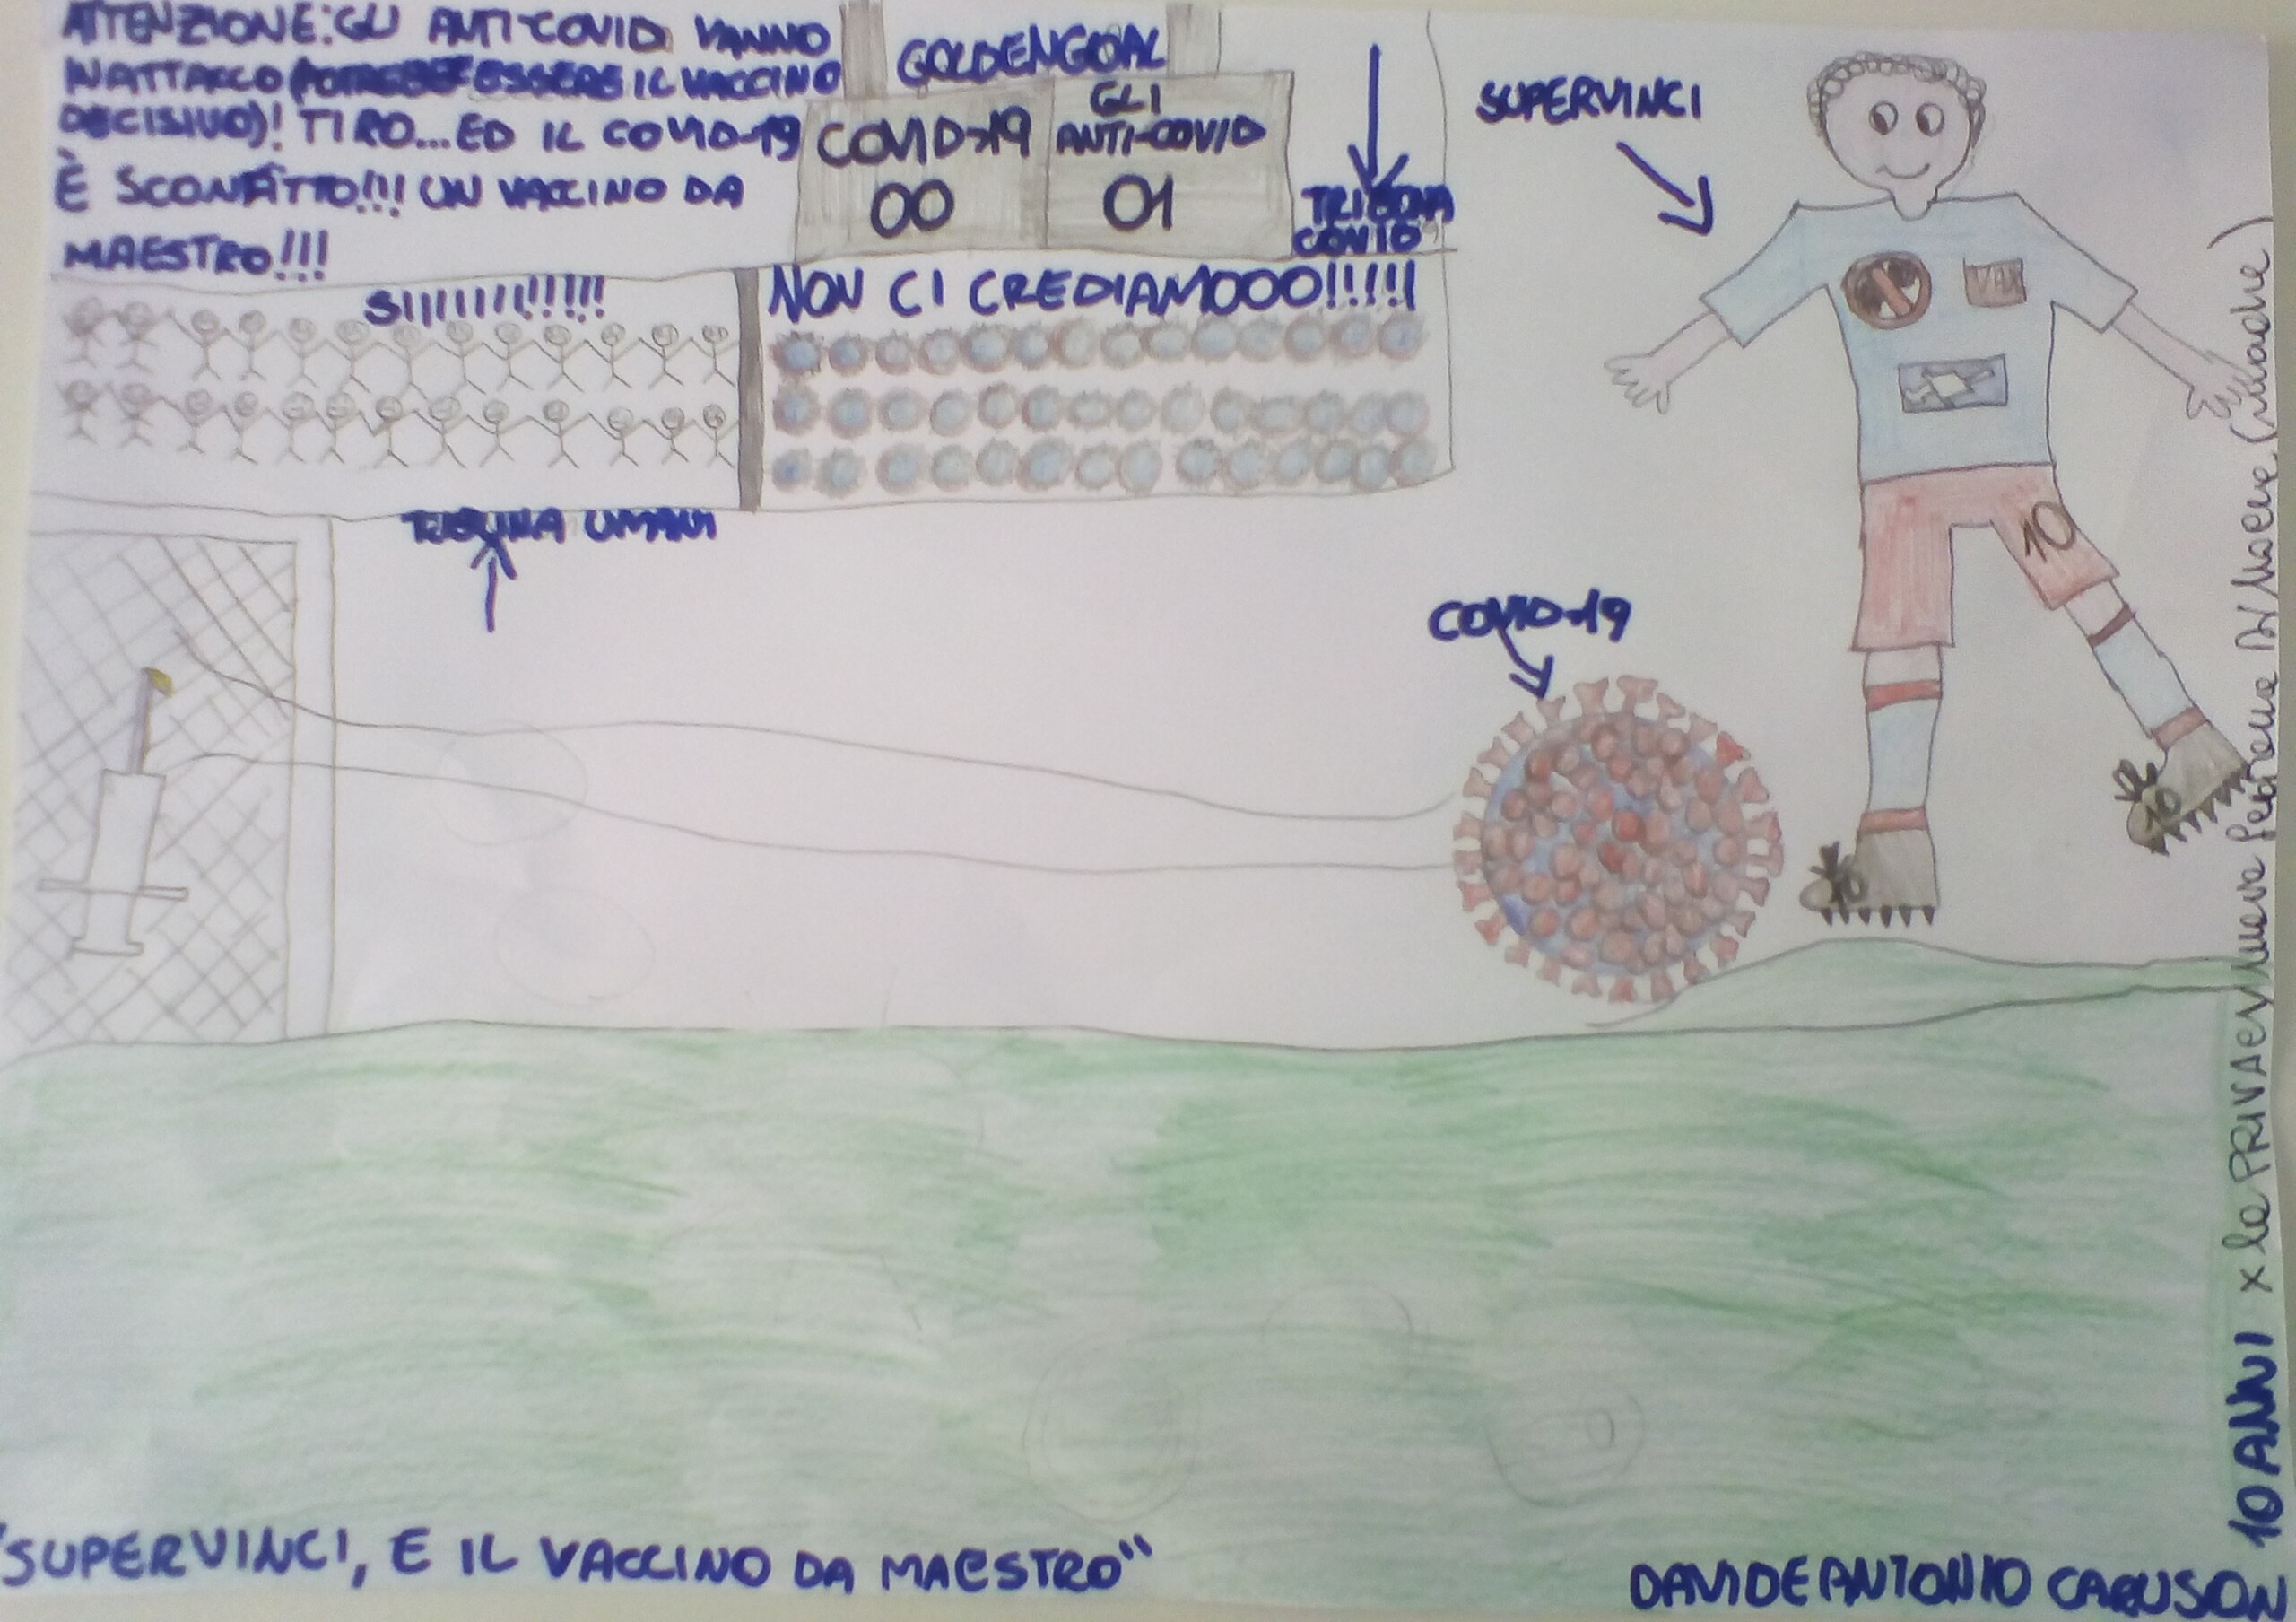 ATTENZIONE: GLI ANTI-COVID VANNO
IN ATTACCO (POTREBBE ESSERE IL VACCINO
DECISIVO)! TIRO...ED IL COVID-19
È SCONFITTO!!! UN VACCINO DA
MAESTRO!!!
GOLDENGOAL
COVID-19
00
GLI
ANTI-COVID
01
TRIBUNA
COVID
SUPERVINCI
SIIIIIII!!!!!
NON CI CREDIAMOOO!!!!!
TRIBUNA UMANI
VAX
10
COVID-19
10
10
"SUPERVINCI, E IL VACCINO DA MAESTRO"
DAVIDE ANTONIO CARUSON
10 ANNI x la PRIVACY (madre)